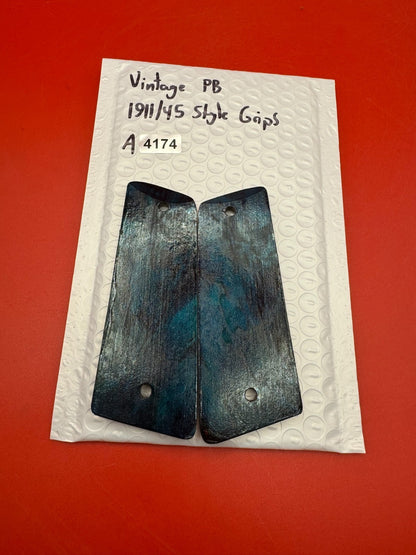 Vintage PB
1911/45 Style Grips
A 4174